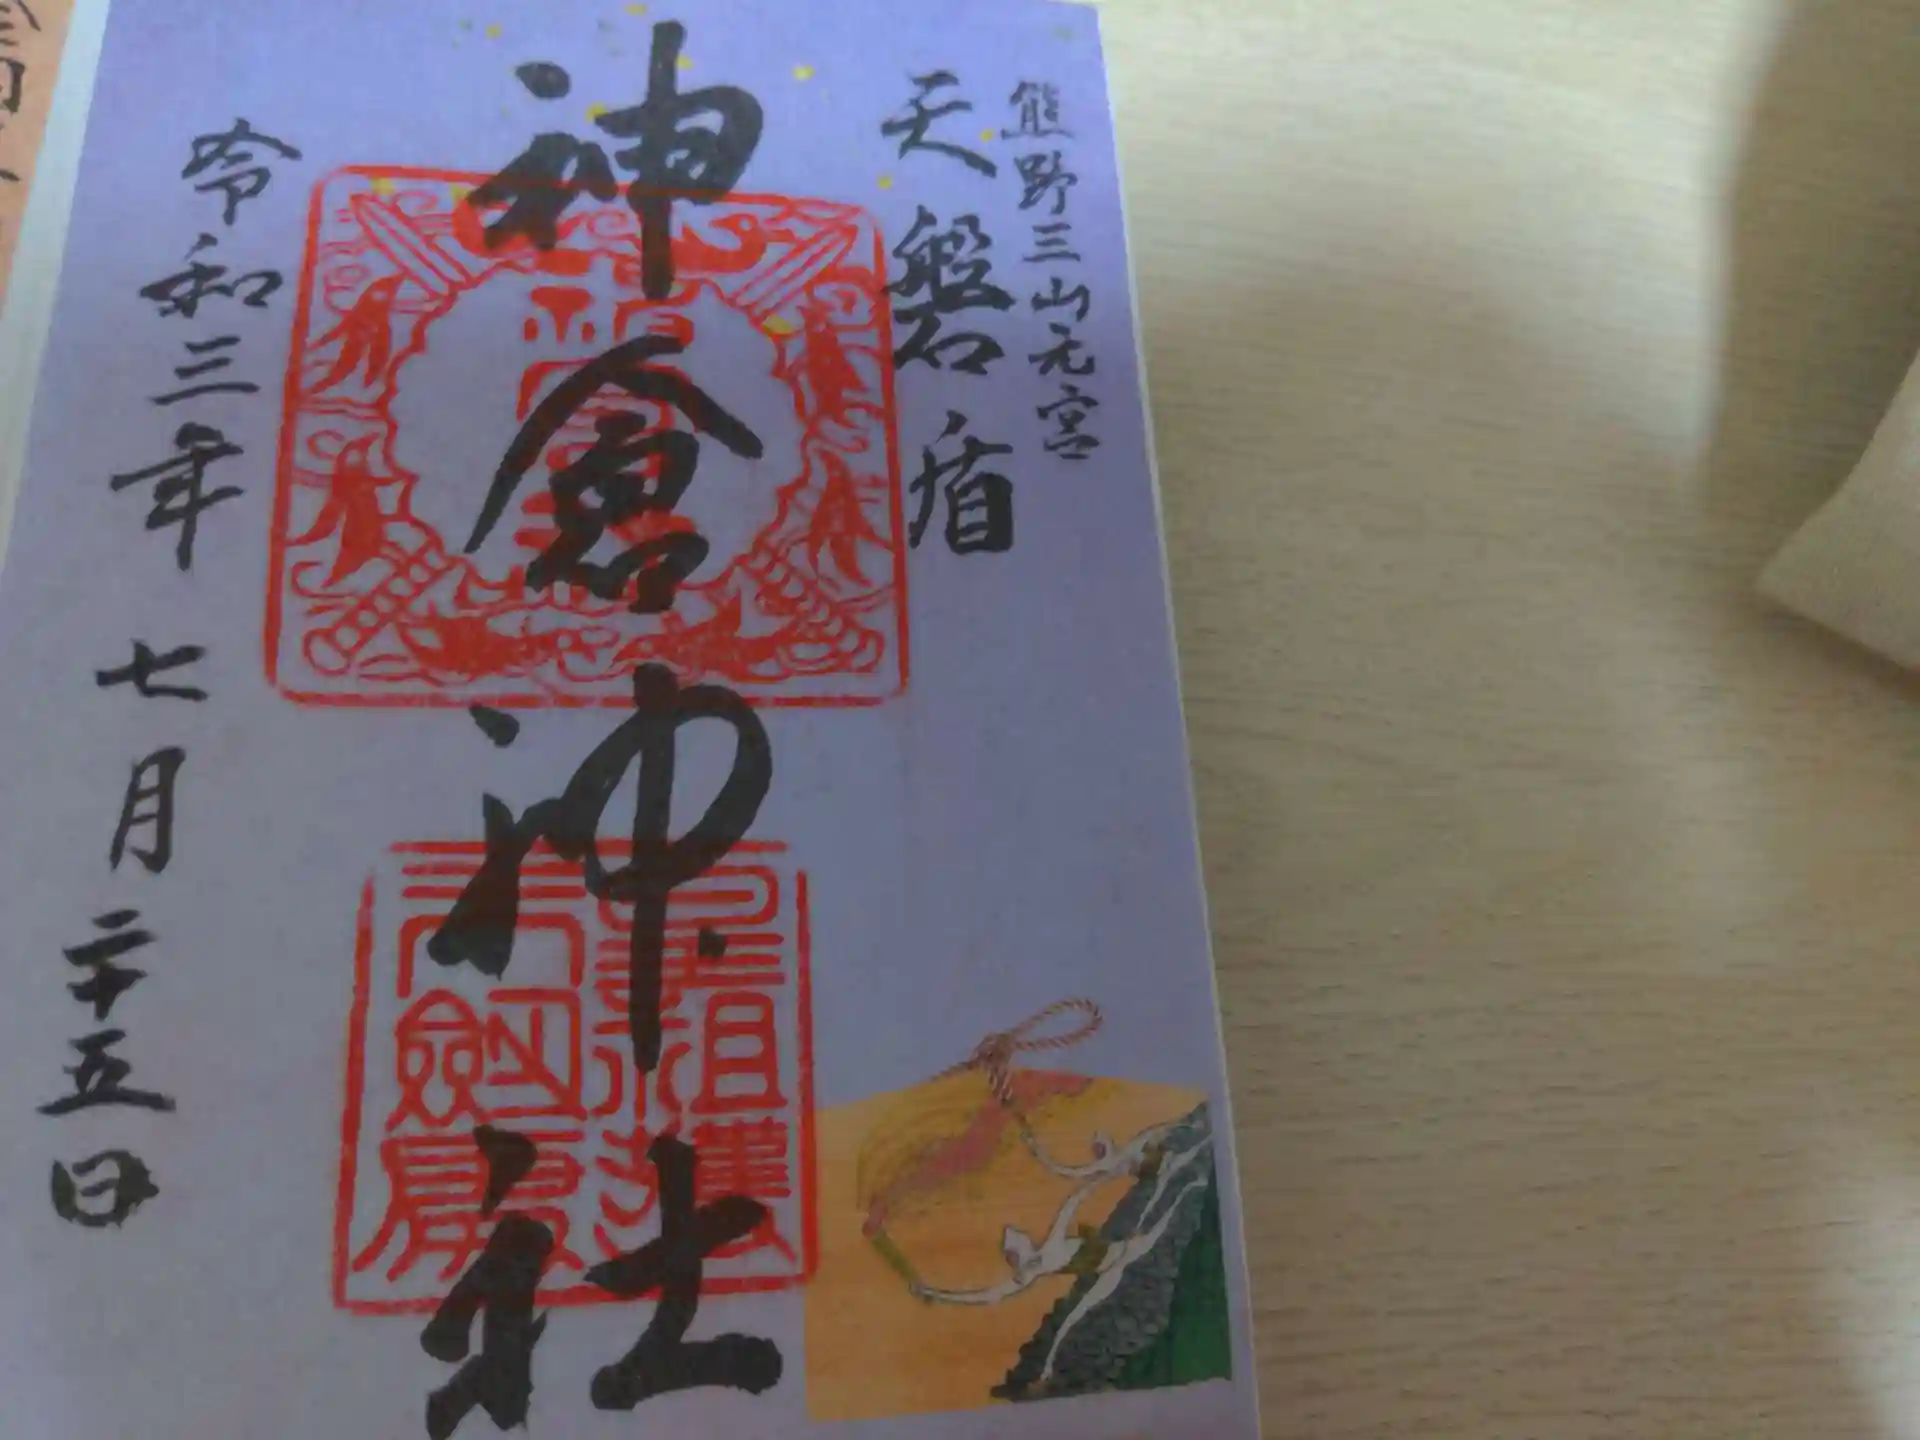 熊野三山元宮
天磐盾
神倉神社
令和三年 七月 二十五日